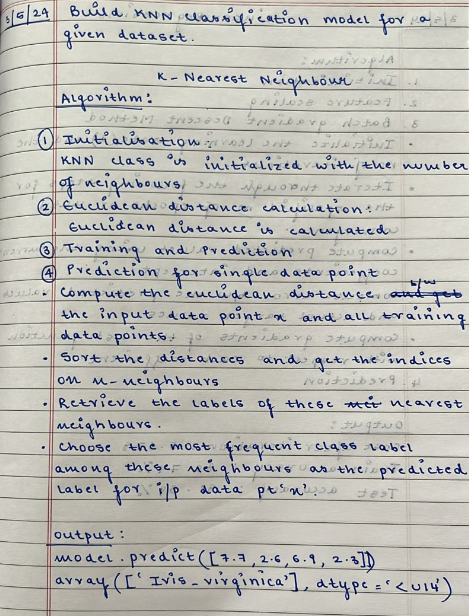 3/5/24 Build KNN classification model for a
given dataset.
K - Nearest Neighbour
Algorithm:
① Initialisation:
KNN class is initialized with the number
of neighbours
② Euclidean distance calculation:
Euclidean distance is calculated
③ Training and Prediction
④ Prediction for single data point
• Compute the euclidean distance b/w
the input data point x and all training
data points.
• Sort the distances and get the indices
on n-neighbours
• Retrieve the labels of these nearest
neighbours.
• Choose the most frequent class label
among these neighbours as the predicted
label for i/p data pt 'x'.
output:
model.predict([7.7, 2.6, 6.9, 2.3]])
array(['Iris-virginica'], dtype='<U14')